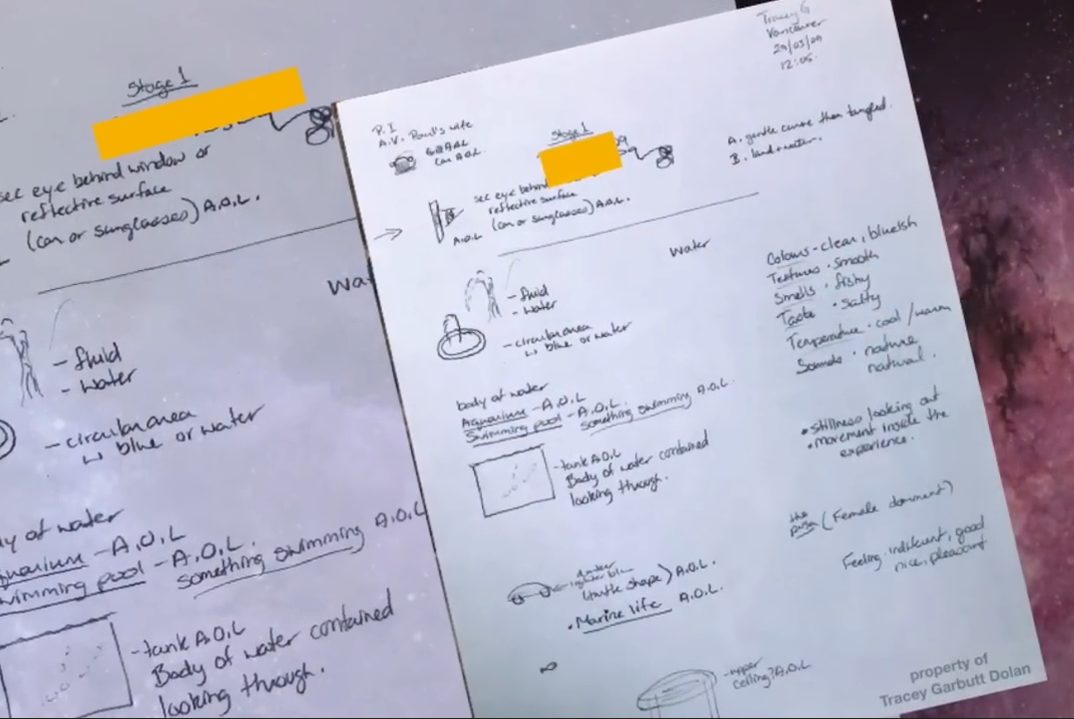 Tracey G
Vancouver
29/03/09
12:05.
P.I
A.V. Paul's wife
car A.O.L.
Stage 1
A. gentle curve then tangled.
B. land + water.
see eye behind
reflective surface
(car or sunglasses) A.O.L.
A.O.L
Water
- fluid
- water
- circular area
↳ blue or water
Colours - clear, blueish
Textures - smooth
Smells - fishy
Taste - salty
Temperature - cool / warm
Sounds - nature
natural.
body of water
Aquarium - A.O.L
Swimming pool - A.O.L.
something swimming A.O.L.
- tank A.O.L
Body of water contained
looking through.
• stillness looking out
• movement inside the
experience.
the
(Female dominent)
Feeling, indulgent, good
nice, pleasant
(turtle shape) A.O.L.
• Marine life A.O.L.
- upper
ceiling? A.O.L
property of
Tracey Garbutt Dolan
Stage 1
see eye behind window or
reflective surface
(car or sunglasses) A.O.L.
Wat
- fluid
- water
- circular area
↳ blue or water
dy of water
quarium - A.O.L
wimming pool - A.O.L.
something swimming A.O.L
- tank A.O.L
Body of water contained
looking through.